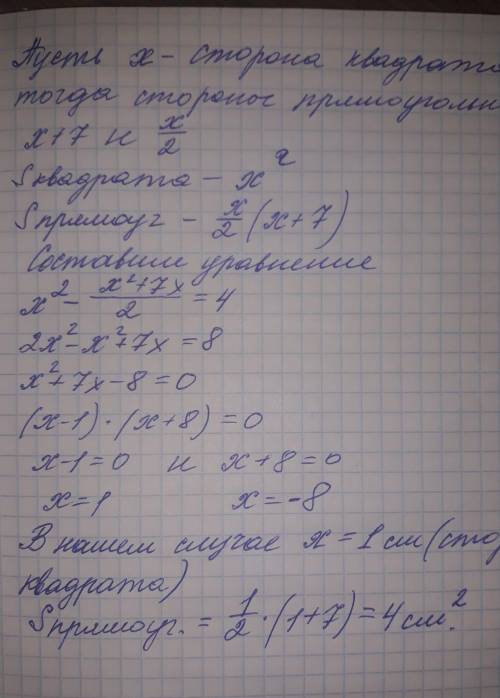 Пусть х - сторона квадрата
тогда стороны прямоугольн
х+7 и x/2
Sквадрата - x²
Sпрямоуг - x/2 (x+7)
Составим уравнение
x² - (x²+7x)/2 = 4
2x² - x²+7x = 8
x²+7x-8=0
(x-1)·(x+8)=0
x-1=0 и x+8=0
x=1 x=-8
В нашем случае x=1см (сто
квадрата)
Sпрямоуг. = 1/2·(1+7)=4см.²